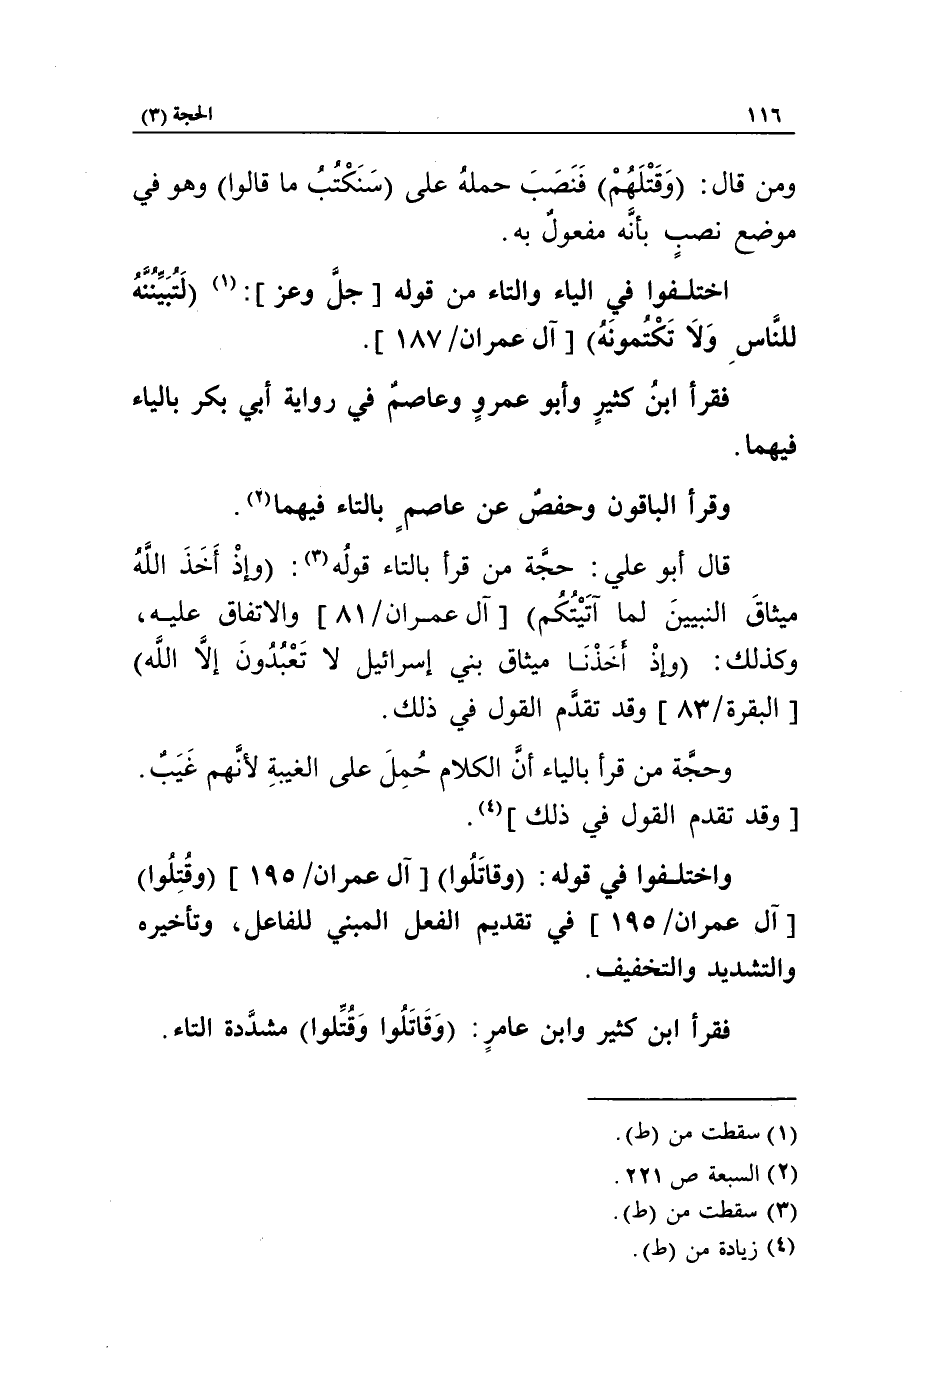 ١١٦
الحجة (٣)
ومن قال: (وَقَتْلَهُمْ) فَنَصَبَ حملهُ على (سَنَكْتُبُ ما قالوا) وهو في
موضع نصبٍ بأنَّه مفعولٌ به.
اختلـفوا في الياء والتاء من قوله [ جلَّ وعز ]:(١) (لَتُبَيِّنُنَّهُ
للنَّاسِ وَلَا تَكْتُمونَهُ) [ آل عمران/ ١٨٧ ].
فقرأ ابنُ كثيرٍ وأبو عمروٍ وعاصمٌ في رواية أبي بكر بالياء
فيهما.
وقرأ الباقون وحفصٌ عن عاصمٍ بالتاء فيهما(٢).
قال أبو علي: حجَّة من قرأ بالتاء قولُه(٣): (وإذْ أَخَذَ اللَّهُ
ميثاقَ النبيينَ لما آتَيْتُكُم) [ آل عمـران/ ٨١ ] والاتفاق عليـه،
وكذلك: (وإذْ أَخَذْنَـا ميثاق بني إسرائيل لا تَعْبُدُونَ إلاَّ اللَّه)
[ البقرة/ ٨٣ ] وقد تقدَّم القول في ذلك.
وحجَّة من قرأ بالياء أنَّ الكلام حُمِلَ على الغيبةِ لأنَّهم غَيَبٌ.
[ وقد تقدم القول في ذلك ](٤).
واختلـفوا في قوله: (وقاتَلُوا) [ آل عمران/ ١٩٥ ] (وقُتِلُوا)
[ آل عمران/ ١٩٥ ] في تقديم الفعل المبني للفاعل، وتأخيره
والتشديد والتخفيف.
فقرأ ابن كثير وابن عامرٍ: (وَقَاتَلُوا وَقُتِّلوا) مشدَّدة التاء.
(١) سقطت من (ط).
(٢) السبعة ص ٢٢١.
(٣) سقطت من (ط).
(٤) زيادة من (ط).